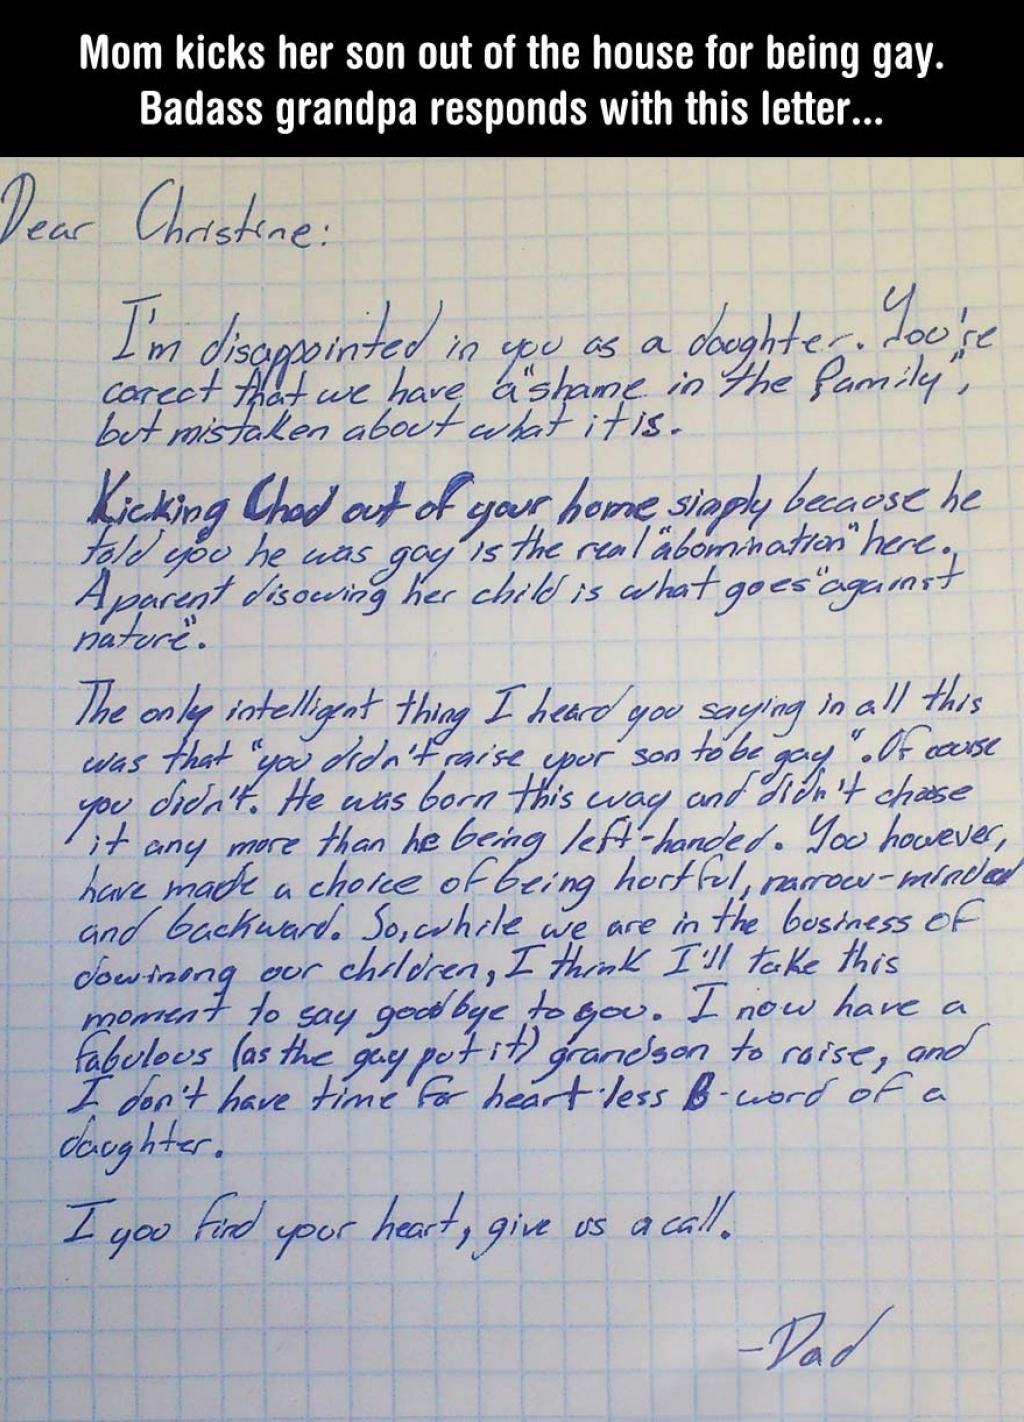 Mom kicks her son out of the house for being gay.
Badass grandpa responds with this letter...
Dear Christine:
I'm disappointed in you as a daughter. You're
corect that we have a "shame in the family",
but mistaken about what it is.
Kicking Chad out of your home simply because he
told you he was gay is the real "abomination" here.
A parent disowing her child is what goes "against
nature".
The only intelligent thing I heard you saying in all this
was that "you didn't raise your son to be gay". Of course
you didn't. He was born this way and didn't choose
it any more than he being left-handed. You however,
have made a choice of being hurtful, narrow-minded
and backward. So, while we are in the business of
dowinong our children, I think I'll take this
moment to say goodbye to you. I now have a
fabulous (as the gay put it) grandson to raise, and
I don't have time for heart less B-word of a
daughter.
I you find your heart, give us a call.
-Dad